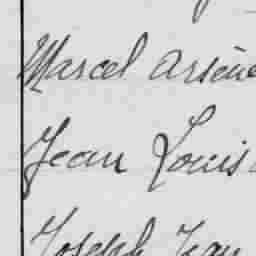 Marcel Arsène
Jean Louis
Joseph Jean